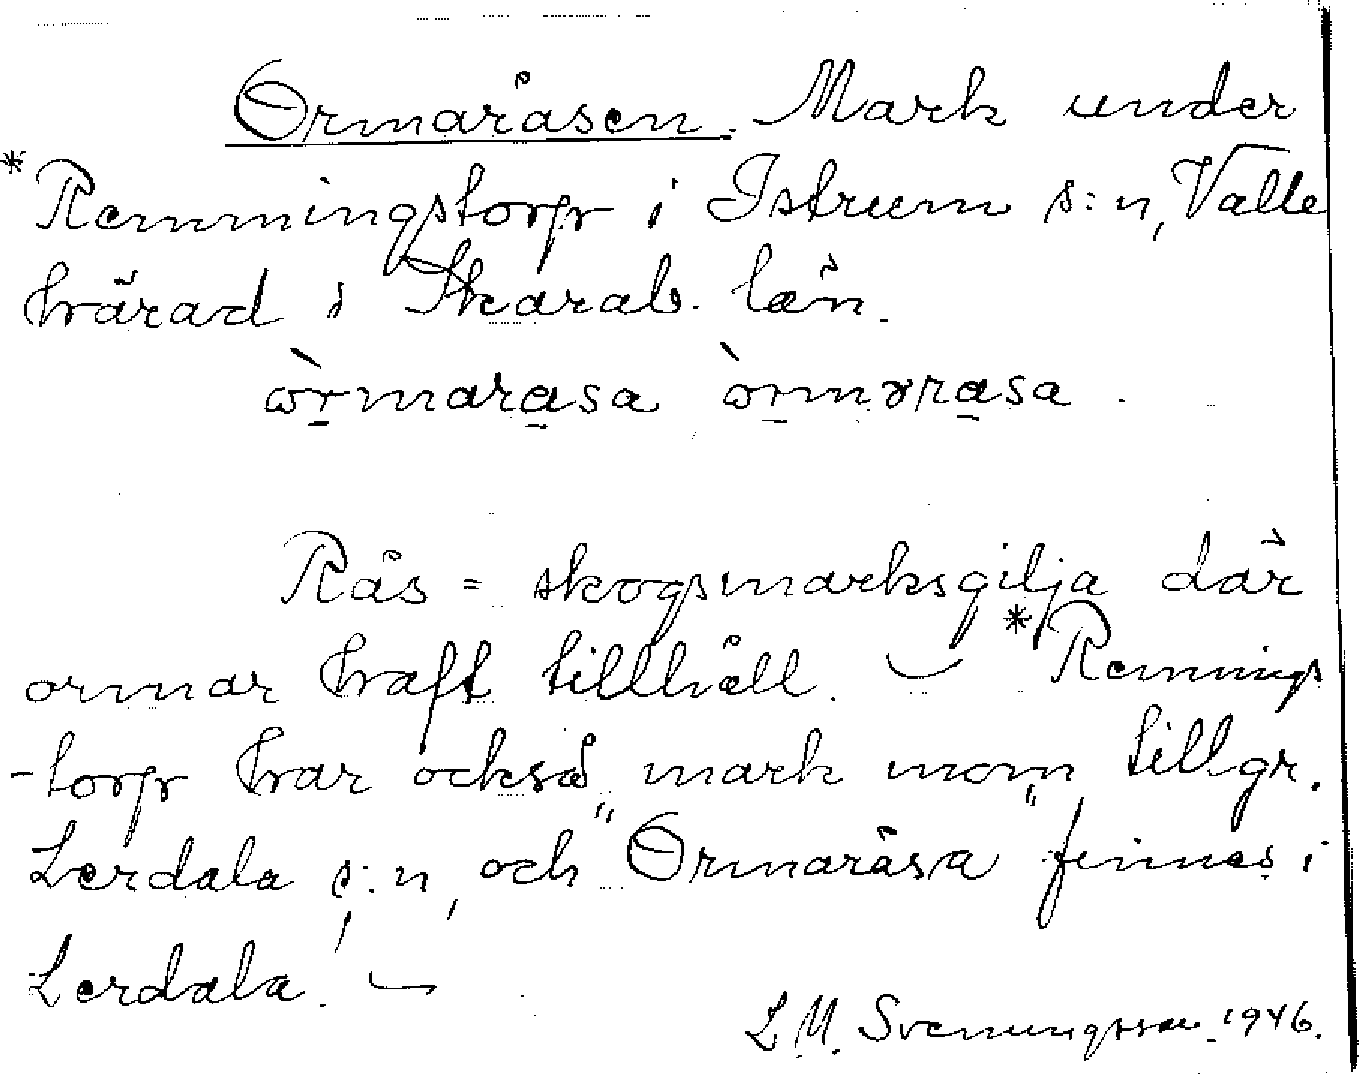 Ormaråsen. Mark under
*Remmingstorp i Istrum s:n, Valle
härad i Skarab. län.
òrmarasa òrmɤrasa.
Rås = skogsmarksgilja där
ormar haft tillhåll. – *Remmings
-torp har också mark inom tillgr.
Lerdala s:n, och "Ormaråsa" finnes i
Lerdala! –
L. M. Svenungsson. 1946.